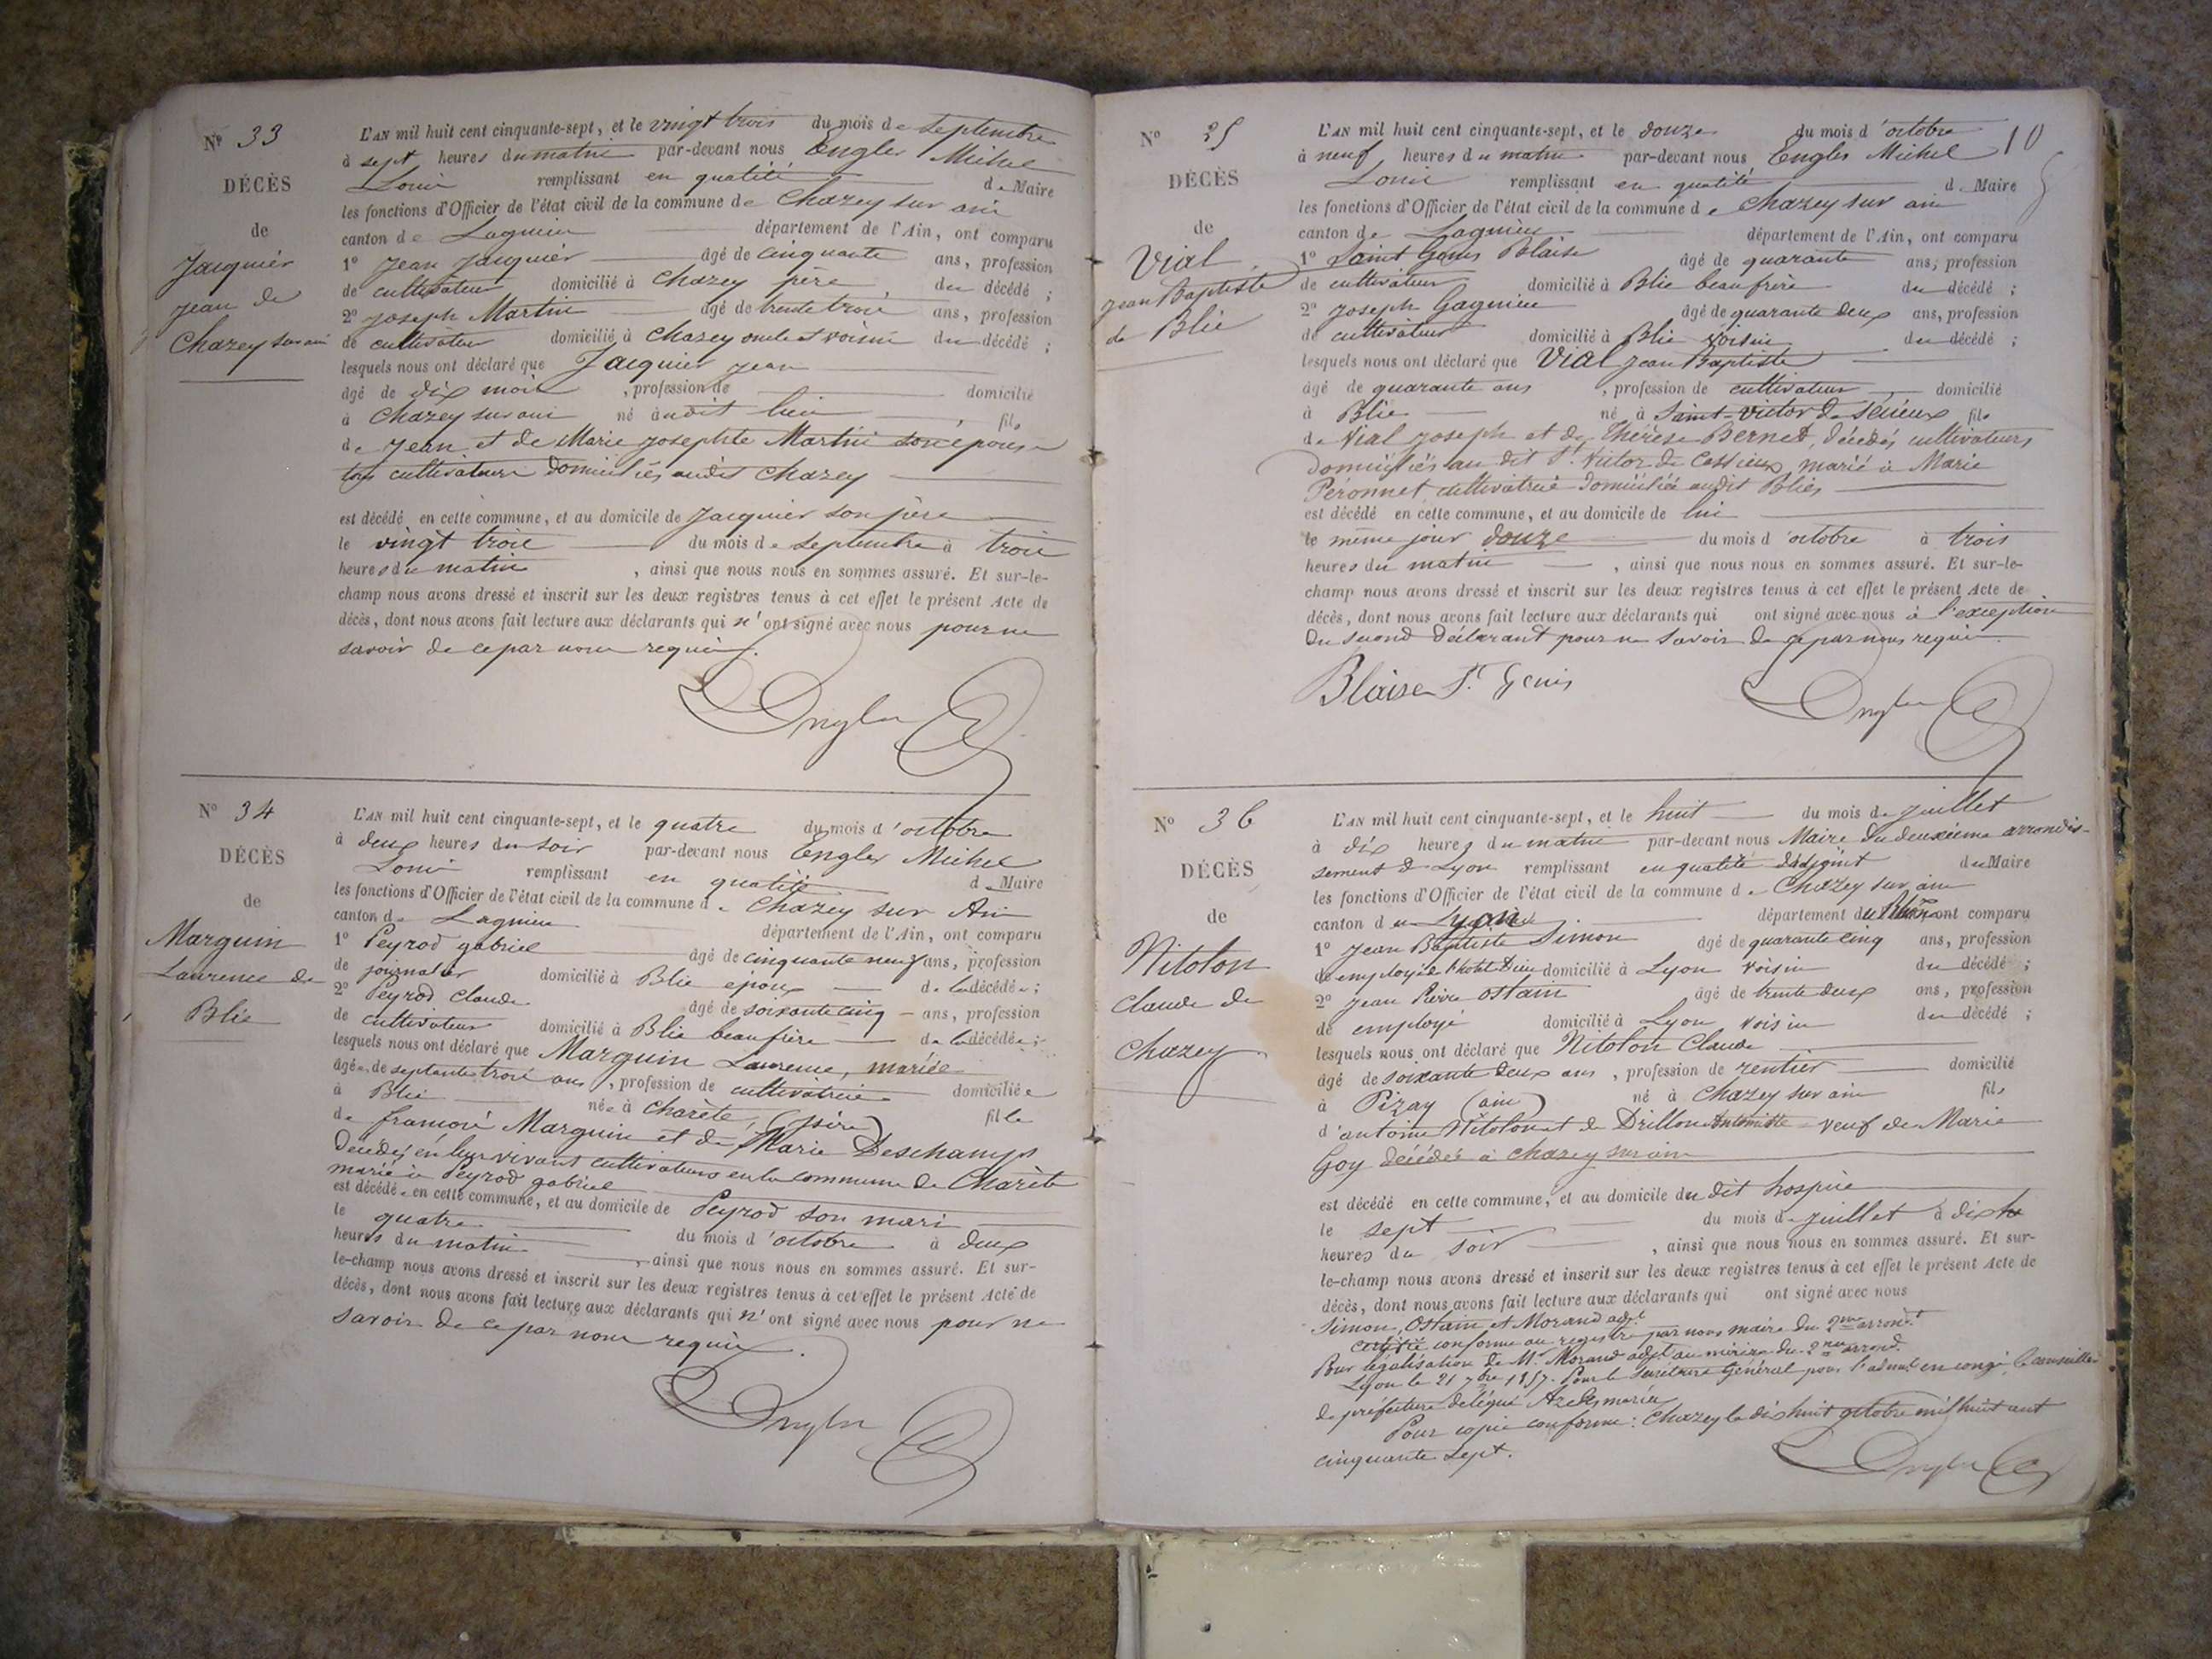 Nº 33
DÉCÈS
de
Jacquier
Jean de
Chazey sur ain
L'AN mil huit cent cinquante-sept, et le vingt trois du mois de septembre
à sept heures du matin par-devant nous Engler Michel
Louis remplissant en qualité de Maire
les fonctions d'Officier de l'état civil de la commune de Chazey sur ain
canton de Lagnieu département de l'Ain, ont comparu
1º Jean Jacquier âgé de cinquante ans, profession
de cultivateur domicilié à Chazey père du décédé ;
2º Joseph Martin âgé de trente trois ans, profession
de cultivateur domicilié à Chazey oncle et voisin du décédé ;
lesquels nous ont déclaré que Jacquier Jean
âgé de dix mois , profession de domicilié
à Chazey sur ain né audit lieu fils
de Jean et de Marie Josephte Martin son épouse
tous cultivateurs domiciliés audit Chazey
est décédé en cette commune, et au domicile de Jacquier son père
le vingt trois du mois de septembre à trois
heures du matin , ainsi que nous nous en sommes assuré. Et sur-le-
champ nous avons dressé et inscrit sur les deux registres tenus à cet effet le présent Acte de
décès, dont nous avons fait lecture aux déclarants qui n'ont signé avec nous pour ne
savoir de ce par nous requis.
Engler
Nº 34
DÉCÈS
de
Marguin
Laurence de
Blie
L'AN mil huit cent cinquante-sept, et le quatre du mois d'octobre
à deux heures du soir par-devant nous Engler Michel
Louis remplissant en qualité de Maire
les fonctions d'Officier de l'état civil de la commune de Chazey sur Ain
canton de Lagnieu département de l'Ain, ont comparu
1º Peyrod gabriel âgé de cinquante neuf ans, profession
de journalier domicilié à Blie époux de la décédée ;
2º Peyrod Claude âgé de soixante cinq ans, profession
de cultivateur domicilié à Blie beaufrère de la décédée ;
lesquels nous ont déclaré que Marguin Laurence, mariée
âgée de septante trois ans , profession de cultivatrice domiciliée
à Blie née à Charète, (isère) fille
de françois Marguin et de Marie Deschamps
décédés en leur vivant cultivateurs en la commune de Charète
marié à Peyrod gabriel
est décédée en cette commune, et au domicile de Peyrod son mari
le quatre du mois d'octobre à deux
heures du matin , ainsi que nous nous en sommes assuré. Et sur-
le-champ nous avons dressé et inscrit sur les deux registres tenus à cet effet le présent Acte de
décès, dont nous avons fait lecture aux déclarants qui n'ont signé avec nous pour ne
savoir de ce par nous requis.
Engler
10
Nº 35
DÉCÈS
de
Vial
Jean Baptiste
de Blie
L'AN mil huit cent cinquante-sept, et le douze du mois d'octobre
à neuf heures du matin par-devant nous Engler Michel
Louis remplissant en qualité de Maire
les fonctions d'Officier de l'état civil de la commune de Chazey sur ain
canton de Lagnieu département de l'Ain, ont comparu
1º Saint Genis Blaise âgé de quarante ans, profession
de cultivateur domicilié à Blie beaufrère du décédé ;
2º Joseph Gagnieu âgé de quarante deux ans, profession
de cultivateur domicilié à Blie voisin du décédé ;
lesquels nous ont déclaré que Vial Jean Baptiste
âgé de quarante ans , profession de cultivateur domicilié
à Blie né à Saint-Victor de fils
de Vial Joseph et de Thérèse Bernet, décédés cultivateurs
domiciliés au dit St. Victor de Cessieux, marié à Marie
Péronnet cultivatrice domiciliée audit Blies
est décédé en cette commune, et au domicile de lui
le même jour douze du mois d'octobre à trois
heures du matin , ainsi que nous nous en sommes assuré. Et sur-le-
champ nous avons dressé et inscrit sur les deux registres tenus à cet effet le présent Acte de
décès, dont nous avons fait lecture aux déclarants qui ont signé avec nous à l'exception
du second déclarant pour ne savoir de ce par nous requis.
Blaise St. Genis
Engler
Nº 36
DÉCÈS
de
Nitolon
Claude de
Chazey
L'AN mil huit cent cinquante-sept, et le huit du mois de juillet
à dix heures du matin par-devant nous Maire du deuxième arrondis-
sement de Lyon remplissant en qualité d'adjoint du Maire
les fonctions d'Officier de l'état civil de la commune de Chazey sur ain
canton de Lyon département du Rhône ont comparu
1º Jean Baptiste Simon âgé de quarante cinq ans, profession
de employé à l'hotel-Dieu domicilié à Lyon voisin du décédé ;
2º Jean Pierre Ostain âgé de trente deux ans, profession
de employé domicilié à Lyon voisin du décédé ;
lesquels nous ont déclaré que Nitolon Claude
âgé de soixante deux ans , profession de rentier domicilié
à Pizay (ain) né à Chazey sur ain fils
d'antoine Nitolon et de Drillon Antoinette veuf de Marie
Goy décédée à Chazey sur ain
est décédé en cette commune, et au domicile du dit hospice
le sept du mois de juillet à dix
heures du soir , ainsi que nous nous en sommes assuré. Et sur-
le-champ nous avons dressé et inscrit sur les deux registres tenus à cet effet le présent Acte de
décès, dont nous avons fait lecture aux déclarants qui ont signé avec nous
Simon, Ostain et Morand adjt
certifié conforme au registre par nous maire du 2me arrondt
Pour légalisation de Mr. Morand adjt au maire du 2me arrond.
Lyon le 21 7bre 1857. Pour le Secrétaire Général pour l'absent en congé le conseiller
de préfecture délégué
Pour copie conforme : Chazey le dix huit octobre mil huit cent
cinquante sept.
Engler